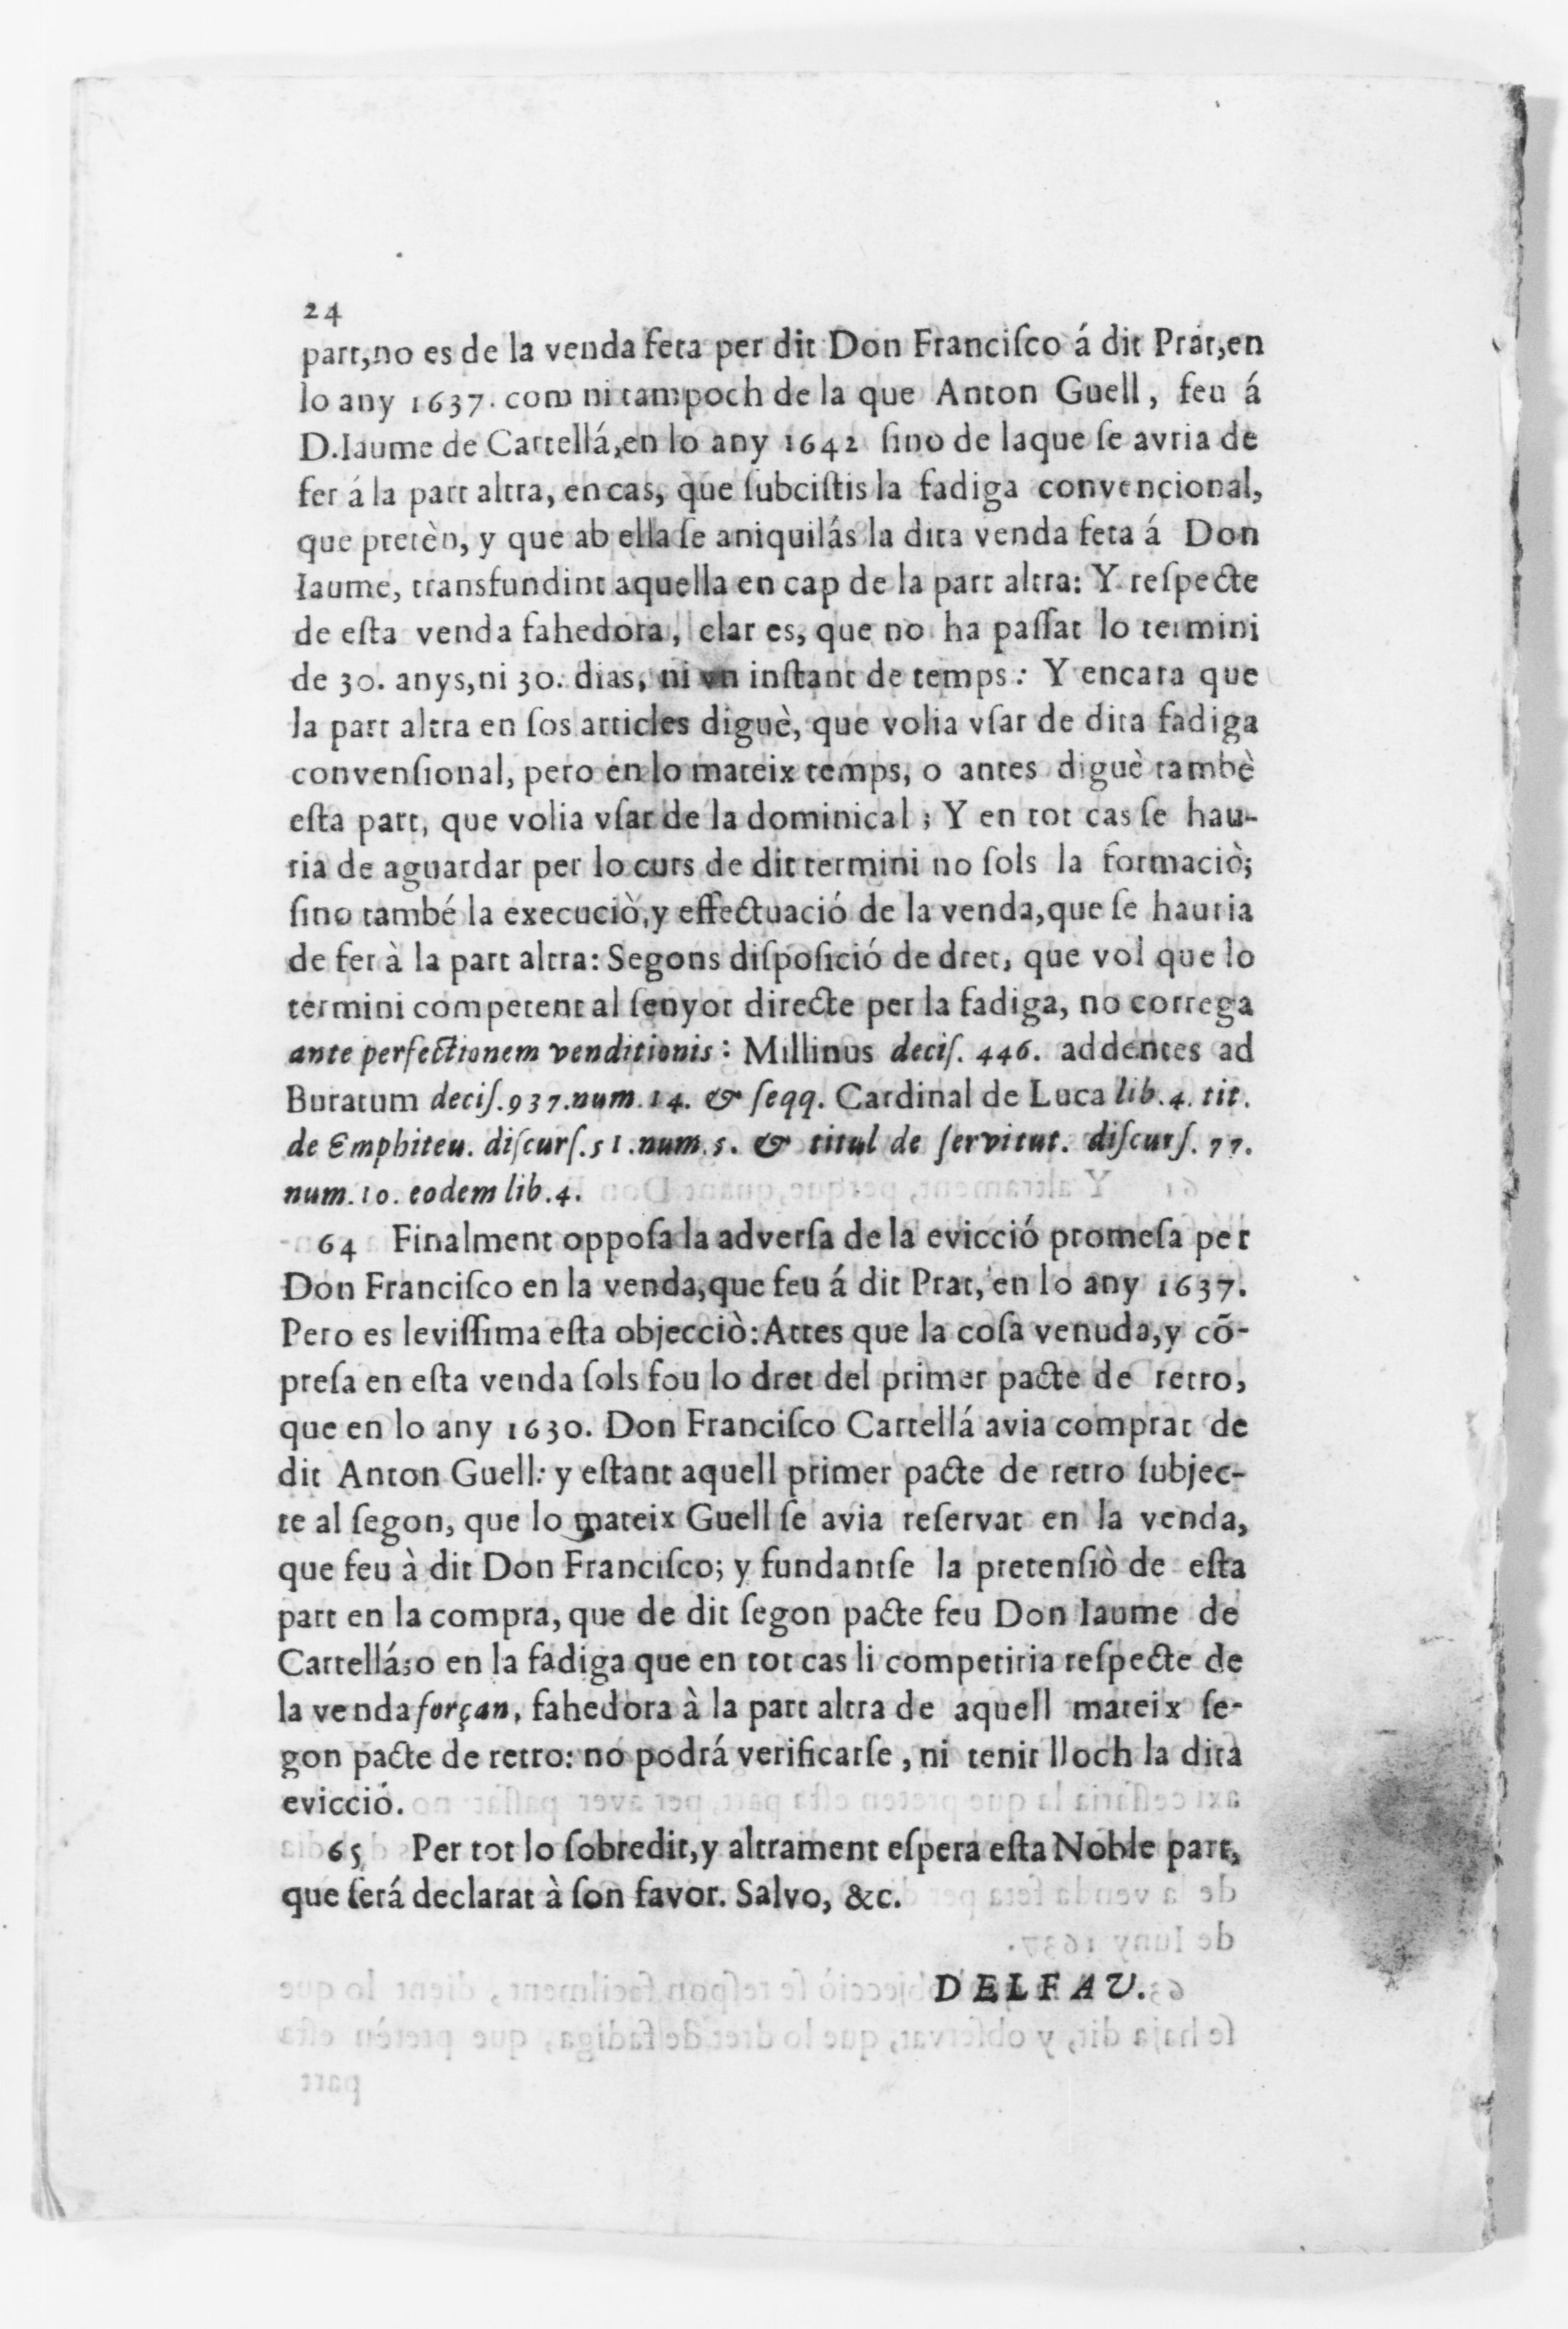 24
part,no es de la venda feta per dit Don Franciſco á dit Prat,en
lo any 1637. com ni tampoch de la que Anton Guell, feu á
D.Iaume de Cartellá,en lo any 1642 ſino de laque ſe avria de
fer á la part altra, en cas, que ſubciſtis la fadiga convencional,
que pretèn, y que ab ella ſe aniquilás la dita venda feta á Don
Iaume, transfundint aquella en cap de la part altra: Y reſpecte
de eſta venda fahedora, clar es, que no ha paſſat lo termini
de 30. anys,ni 30. dias, ni vn inſtant de temps: Y encara que
la part altra en ſos articles diguè, que volia vſar de dita fadiga
convenſional, pero en lo mateix temps, o antes diguè tambè
eſta part, que volia vſar de la dominical; Y en tot cas ſe hau-
ria de aguardar per lo curs de dit termini no ſols la formaciò;
ſino també la execuciò,y effectuació de la venda,que ſe hauria
de fer à la part altra: Segons diſpoſició de dret, que vol que lo
termini competent al ſenyor directe per la fadiga, no correga
ante perfectionem venditionis: Millinus deciſ. 446. addentes ad
Buratum deciſ.937.num.14. & ſeqq. Cardinal de Luca lib.4. tit.
de Emphiteu. diſcurſ.51.num.5. & titul de ſervitut. diſcurſ. 77.
num.10. eodem lib.4.
64 Finalment oppoſa la adverſa de la evicció promeſa per
Don Franciſco en la venda,que feu á dit Prat, en lo any 1637.
Pero es leviſſima eſta objecciò: Attes que la coſa venuda,y cõ-
preſa en eſta venda ſols fou lo dret del primer pacte de retro,
que en lo any 1630. Don Franciſco Cartellá avia comprat de
dit Anton Guell: y eſtant aquell primer pacte de retro ſubjec-
te al ſegon, que lo mateix Guell ſe avia reſervat en la venda,
que feu à dit Don Franciſco; y fundantſe la pretenſiò de eſta
part en la compra, que de dit ſegon pacte feu Don Iaume de
Cartellá: o en la fadiga que en tot cas li competiria reſpecte de
la venda forçan, fahedora à la part altra de aquell mateix ſe-
gon pacte de retro: no podrá verificarſe, ni tenir lloch la dita
evicció.
65 Per tot lo ſobredit,y altrament eſpera eſta Noble part,
que ſerá declarat à ſon favor. Salvo, &c.
DELFAU.